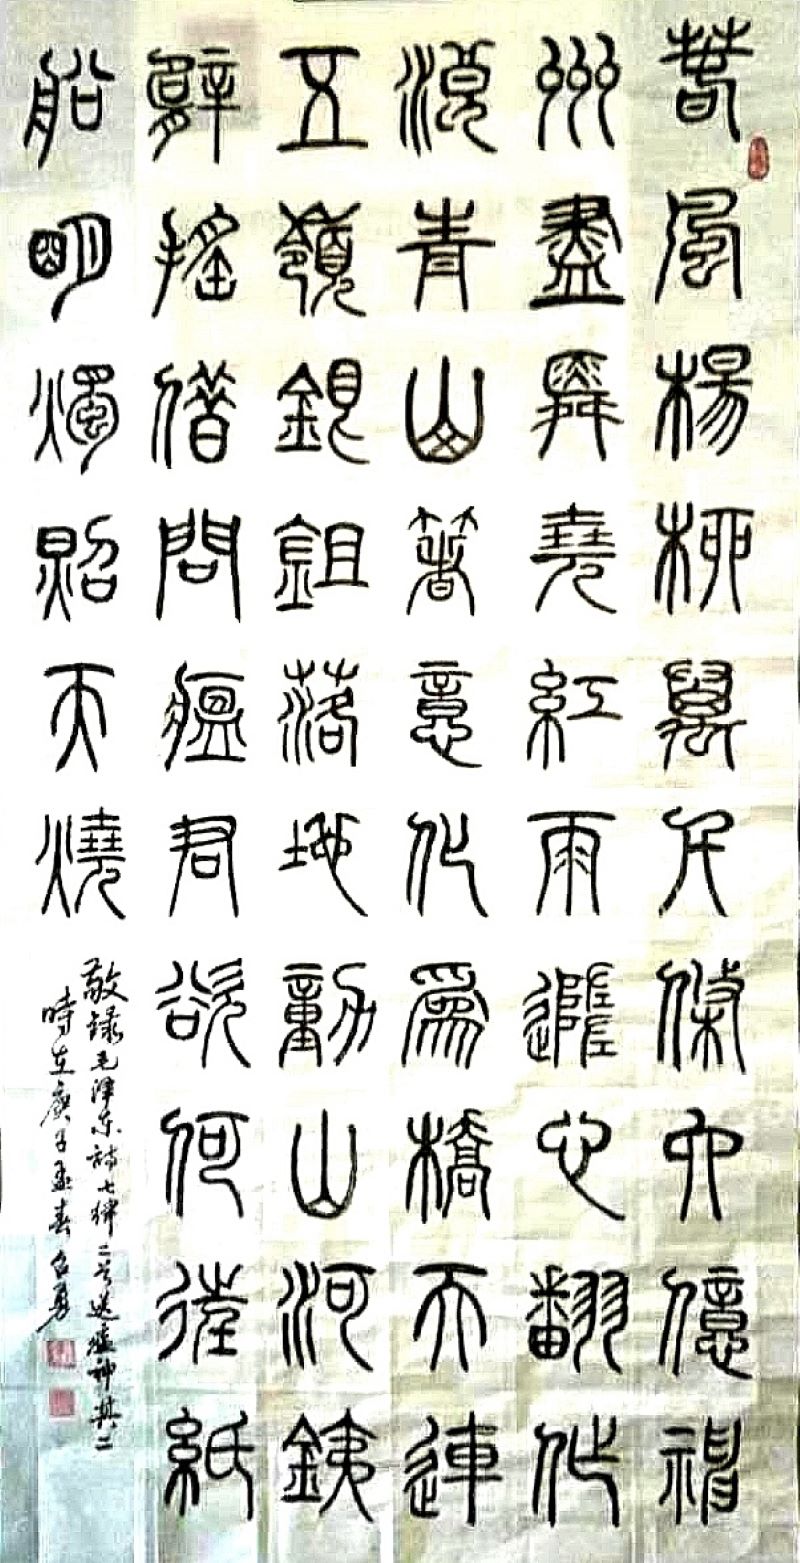 春風楊柳萬千條六億神
州盡舜堯紅雨隨心翻作
浪青山箸意化為橋天連
五嶺銀鉏落地動山河銕
臂搖借問瘟君欲何往紙
船明燭照天燒
敬錄毛澤东詩七律二首送瘟神其二
時在庚子孟春